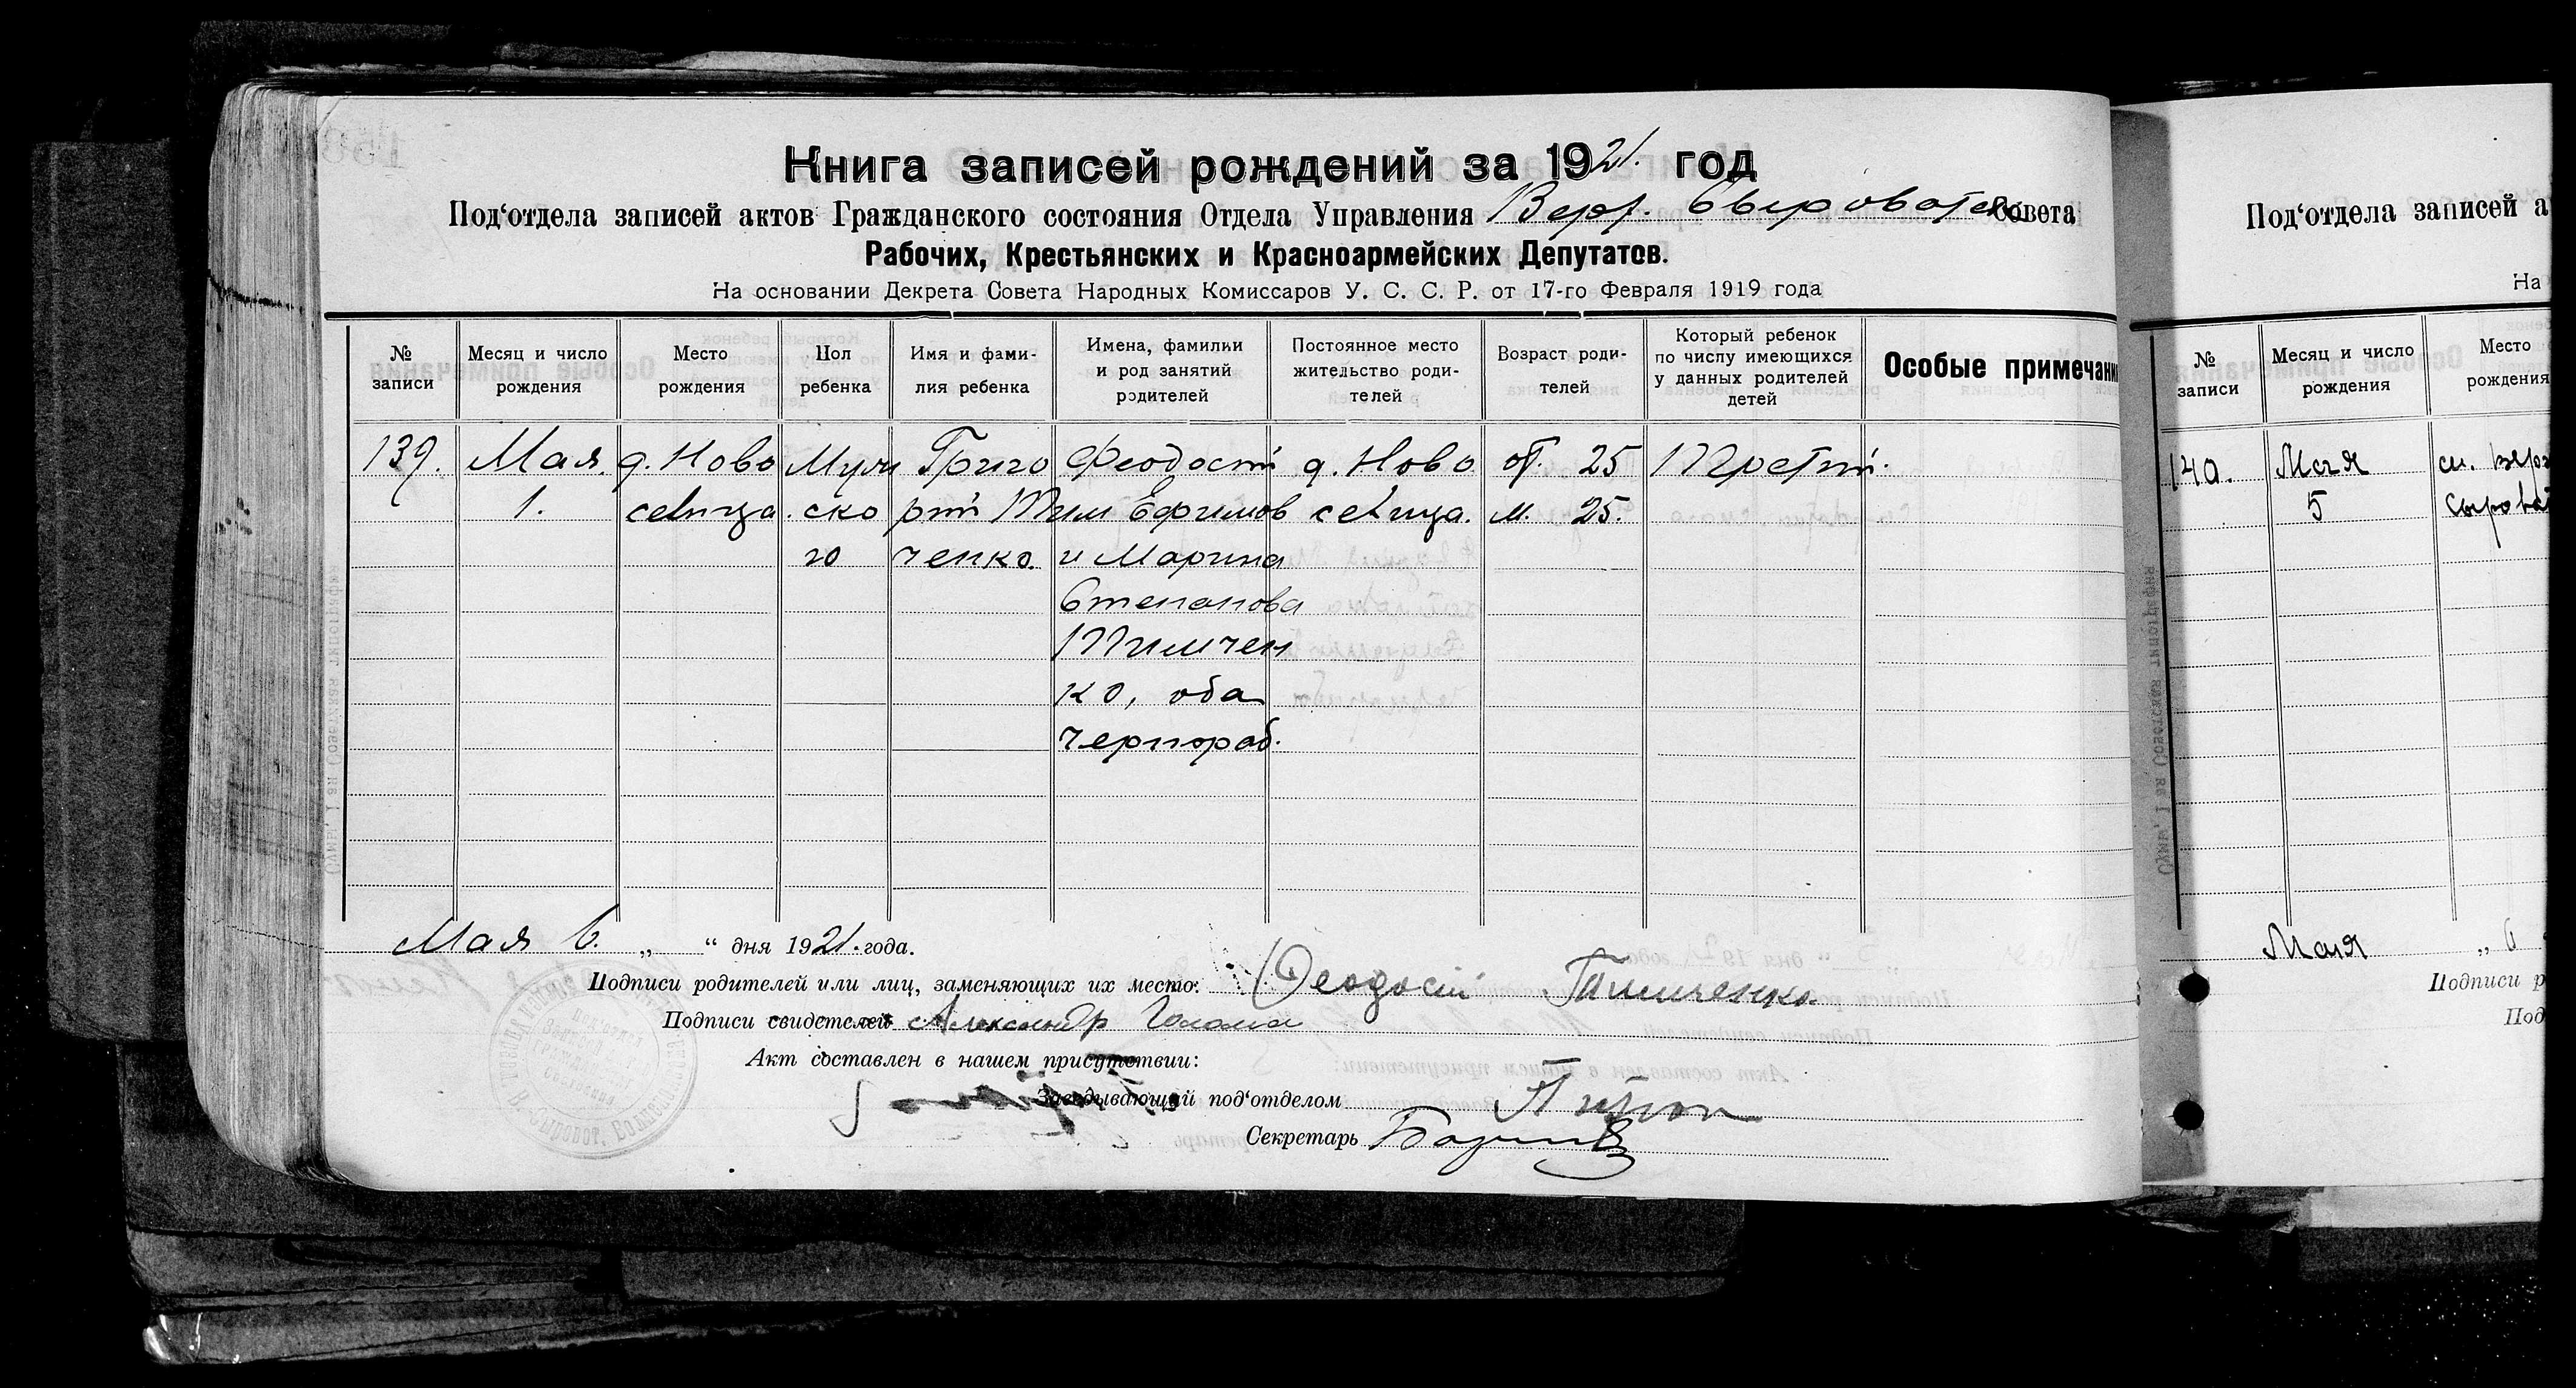 Книга записей рождений за 1921. год
Под‘отдела записей актов Гражданского состояния Отдела Управления Верх. Сыроватск Совета
Рабочих, Крестьянских и Красноармейских Депутатов.
На основании Декрета Совета Народных Комиссаров У. С. С. Р. от 17-го Февраля 1919 года
№ записи
Месяц и число рождения
Место рождения
Пол ребенка
Имя и фами-
лия ребенка
Имена, фамилии
и род занятий
родителей
Постоянное место
жительство роди-
телей
Возраст роди-
телей
Который ребенок
по числу имеющихся
у данных родителей
детей
Особые примечани
139. Мая д. Ново Муж Григо Феодосій д. Ново от. 25 Третій.
1. селица. ско рій Тим Ефимов селица. м. 25.
го ченко. и Марина
Степанова
Тимчен
ко, оба
чернораб.
Мая 6. „ “ дня 1921. года.
Подписи родителей или лиц, заменяющих их место: Феодосій Тимченко
Подписи свидетелей Александр
Акт составлен в нашем присутствии:
Заведывающий под‘отделом
Секретарь
В. Сыроват. Волисп
Под‘отдела записей а
На
№ записи
Месяц и число рождения
Место
рождения
140. Мая сл. верх
5 сырова
Мая „ 6
Подписи р
Под